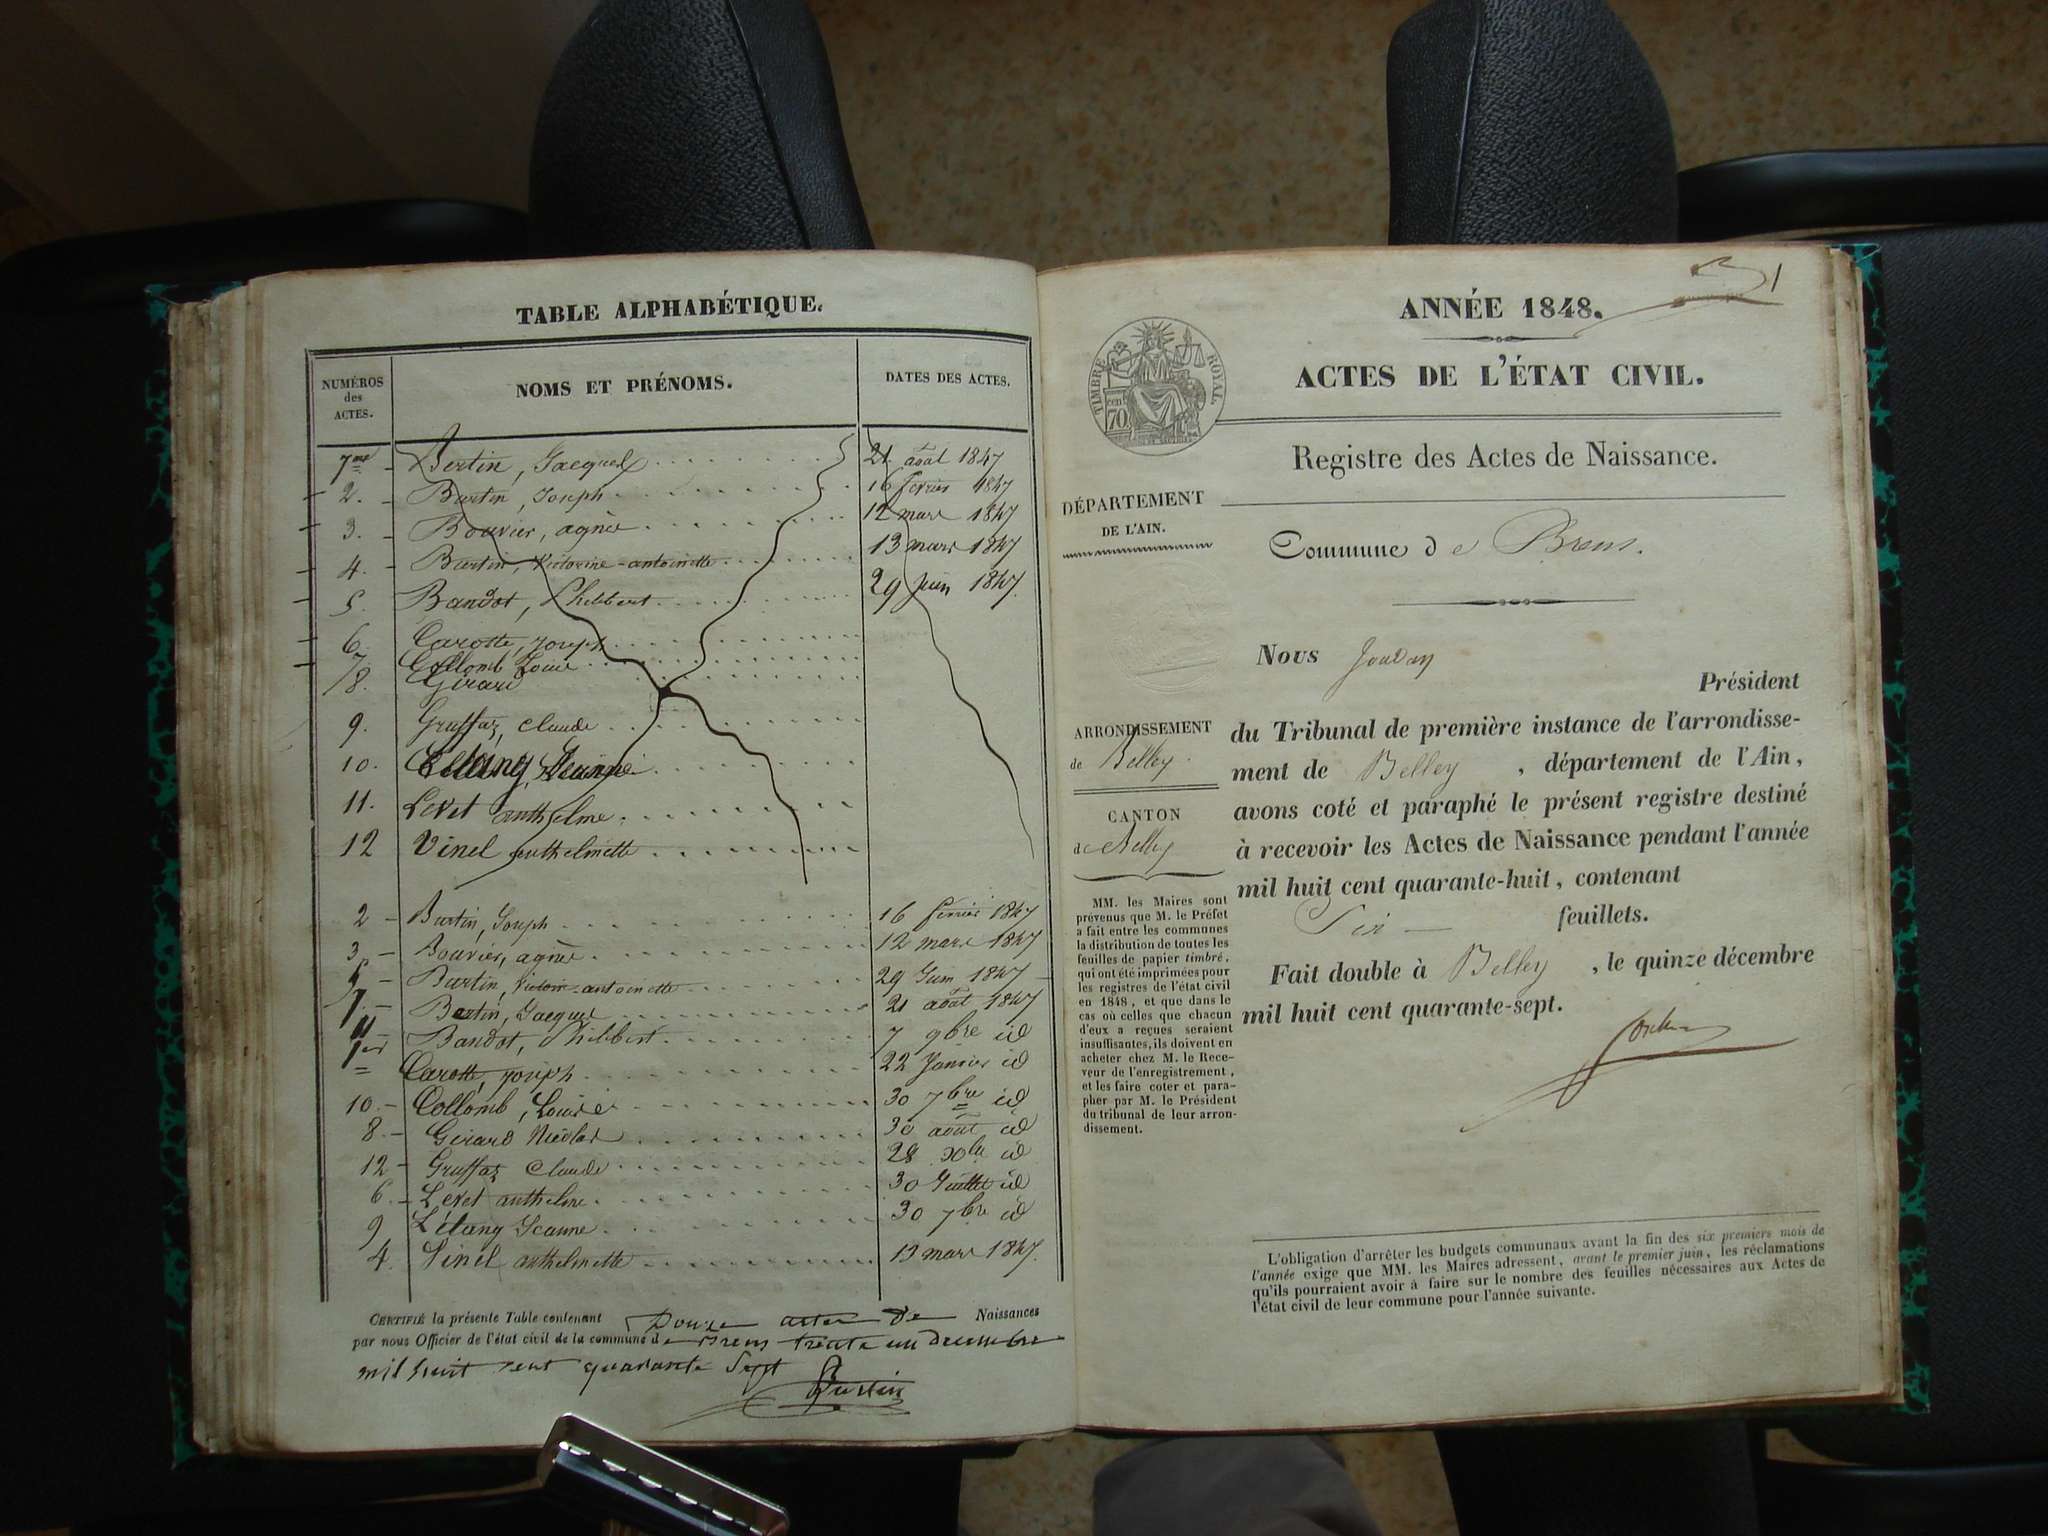 TABLE ALPHABÉTIQUE.
NUMÉROS des ACTES. NOMS ET PRÉNOMS. DATES DES ACTES.
7me Bertin, Jacques 21 août 1847
2. Burtin, Joseph 16 fevrier 1847
3. Bouvier, agnès 12 mars 1847
4. Burtin, Victorine-antoinette 13 mars 1847
5. Bandot, Phelibert 29 Juin 1847.
6. Carotte, Joseph
7 Collomb Louise
8. Girard
9. Gruffaz, Claude
10. Jeanne
11. Levet anthelme
12 Vinel anthelmette
2 Burtin, Joseph 16 fevrier 1847
3 Bouvier, agnès 12 mars 1847
5 Burtin, Victorine-antoinette 29 Juin 1847
7. Bertin, Jacques 21 août 1847
11 Bandot, Phelibert 7 9bre id
1er Carotte, Joseph 22 Janvier id
10 Collomb, Louise 30 7bre id
8. Girard Nicolas 30 août id
12 Gruffaz Claude 28 Xbre id
6. Levet anthelme 30 Juillet id
9 Létang Jeanne 30 7bre id
4. Vinel anthelmette 13 mars 1847.
CERTIFIÉ la présente Table contenant Douze actes de Naissances
par nous Officier de l'état civil de la commune de Brens trente un decembre
mil huit cent quarante Sept Burtin
1
ANNÉE 1848.
TIMBRE ROYAL
70 cent
ACTES DE L'ÉTAT CIVIL.
Registre des Actes de Naissance.
DÉPARTEMENT
DE L'AIN.
Commune de Brens.
ARRONDISSEMENT
de Belley
CANTON
de Belley
MM. les Maires sont
prévenus que M. le Préfet
a fait entre les communes
la distribution de toutes les
feuilles de papier timbré,
qui ont été imprimées pour
les registres de l'état civil
en 1848, et que dans le
cas où celles que chacun
d'eux a reçues seraient
insuffisantes, ils doivent en
acheter chez M. le Rece-
veur de l'enregistrement,
et les faire coter et para-
pher par M. le Président
du tribunal de leur arron-
dissement.
Nous Jordan
Président
du Tribunal de première instance de l'arrondisse-
ment de Belley , département de l'Ain,
avons coté et paraphé le présent registre destiné
à recevoir les Actes de Naissance pendant l'année
mil huit cent quarante-huit, contenant
Six feuillets.
Fait double à Belley , le quinze décembre
mil huit cent quarante-sept.
L'obligation d'arrêter les budgets communaux avant la fin des six premiers mois de
l'année exige que MM. les Maires adressent, avant le premier juin, les réclamations
qu'ils pourraient avoir à faire sur le nombre des feuilles nécessaires aux Actes de
l'état civil de leur commune pour l'année suivante.